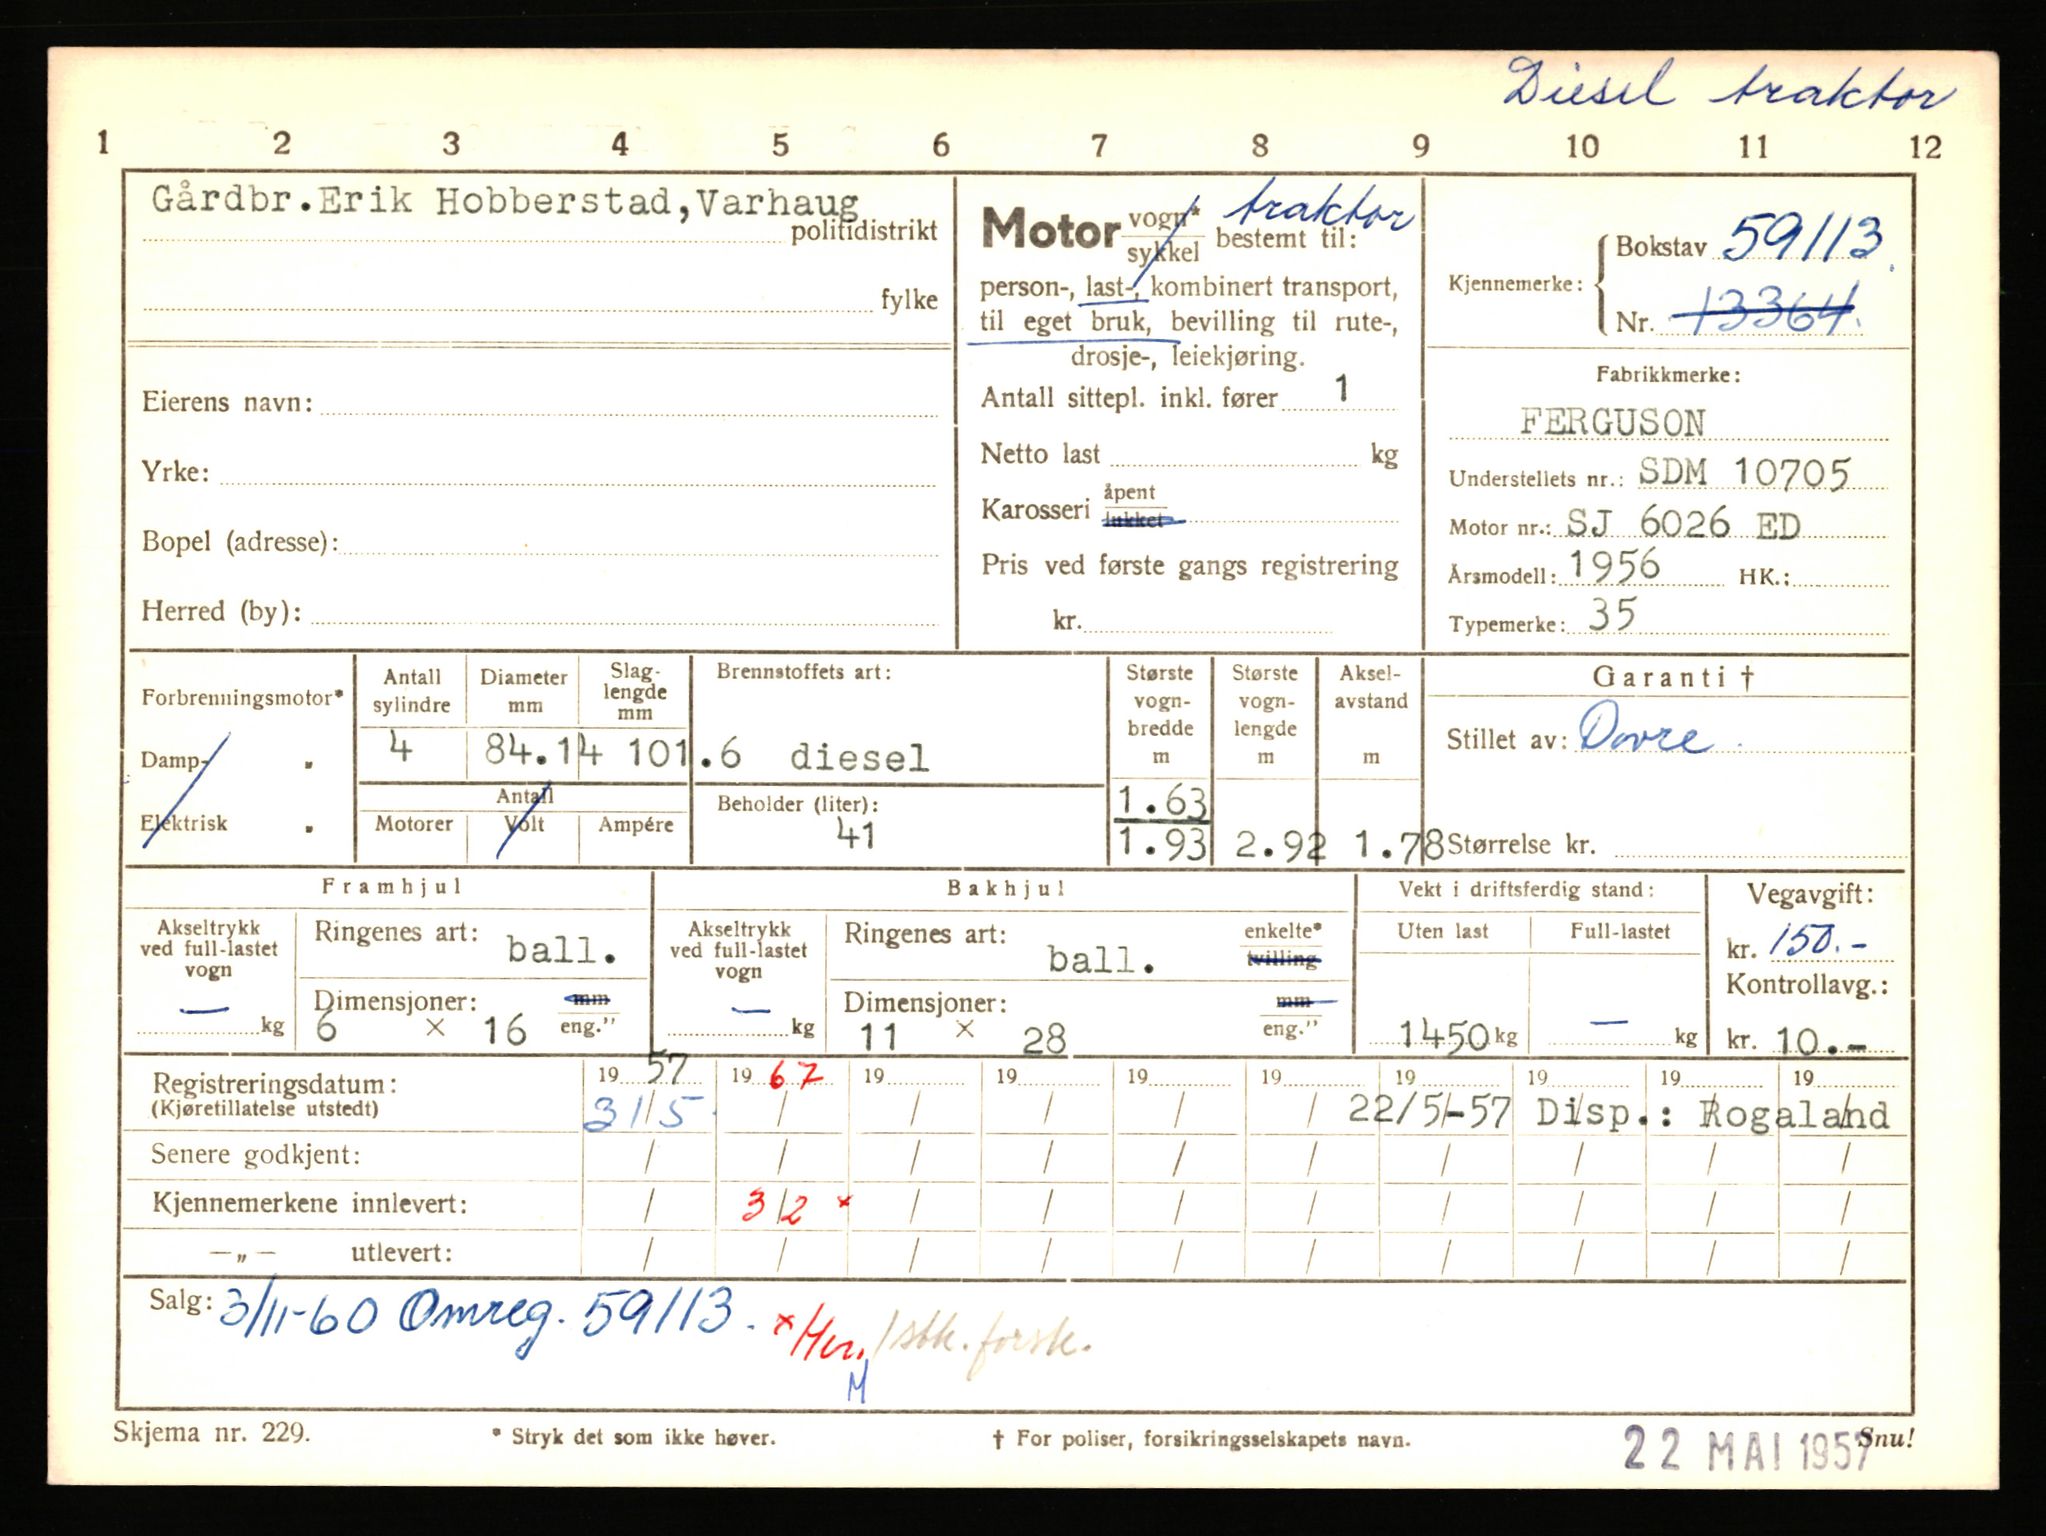 Diesel traktor
1 2 3 4 5 6 7 8 9 10 11 12
Gårdbr.Erik Hobberstad,Varhaug
politidistrikt
fylke
Eierens navn:
Yrke:
Bopel (adresse):
Herred (by):
Motor vogn* traktor
sykkel bestemt til:
person-, last-, kombinert transport,
til eget bruk, bevilling til rute-,
drosje-, leiekjøring.
Antall sittepl. inkl. fører 1
Netto last kg
Karosseri åpent
lukket
Pris ved første gangs registrering
kr.
Kjennemerke: Bokstav 59113
Nr. 13364.
Fabrikkmerke:
FERGUSON
Understellets nr.: SDM 10705
Motor nr.: SJ 6026 ED
Årsmodell: 1956 HK.:
Typemerke: 35
Forbrenningsmotor*
Damp- "
Elektrisk "
Antall sylindre
4
Diameter mm
84.14
Slag-lengde mm
101.6
Antall
Motorer Volt Ampére
Brennstoffets art:
diesel
Beholder (liter):
41
Største vogn-bredde m
1.63
1.93
Største vogn-lengde m
2.92
Aksel-avstand m
1.78
Garanti †
Stillet av: Dovre
Størrelse kr.
Framhjul
Akseltrykk ved full-lastet vogn
— kg
Ringenes art: ball.
Dimensjoner: mm
6 × 16 eng."
Bakhjul
Akseltrykk ved full-lastet vogn
— kg
Ringenes art: ball. enkelte*
tvilling
Dimensjoner: mm
11 × 28 eng."
Vekt i driftsferdig stand:
Uten last Full-lastet
1450 kg — kg
Vegavgift:
kr. 150.-
Kontrollavg.:
kr. 10.-
Registreringsdatum: 19 57 19 67 19 19 19 19 19 19 19 19
(Kjøretillatelse utstedt) 31/5 / / / / / 22/5-57 Disp.: Rogaland
Senere godkjent: / / / / / / / / / /
Kjennemerkene innlevert: / 3/2 × / / / / / / / /
—„— utlevert: / / / / / / / / / /
Salg: 3/11-60 Omreg. 59113. × Her. 1 stk. forsk.
M
Skjema nr. 229. * Stryk det som ikke høver. † For poliser, forsikringsselskapets navn. Snu!
22 MAI 1957